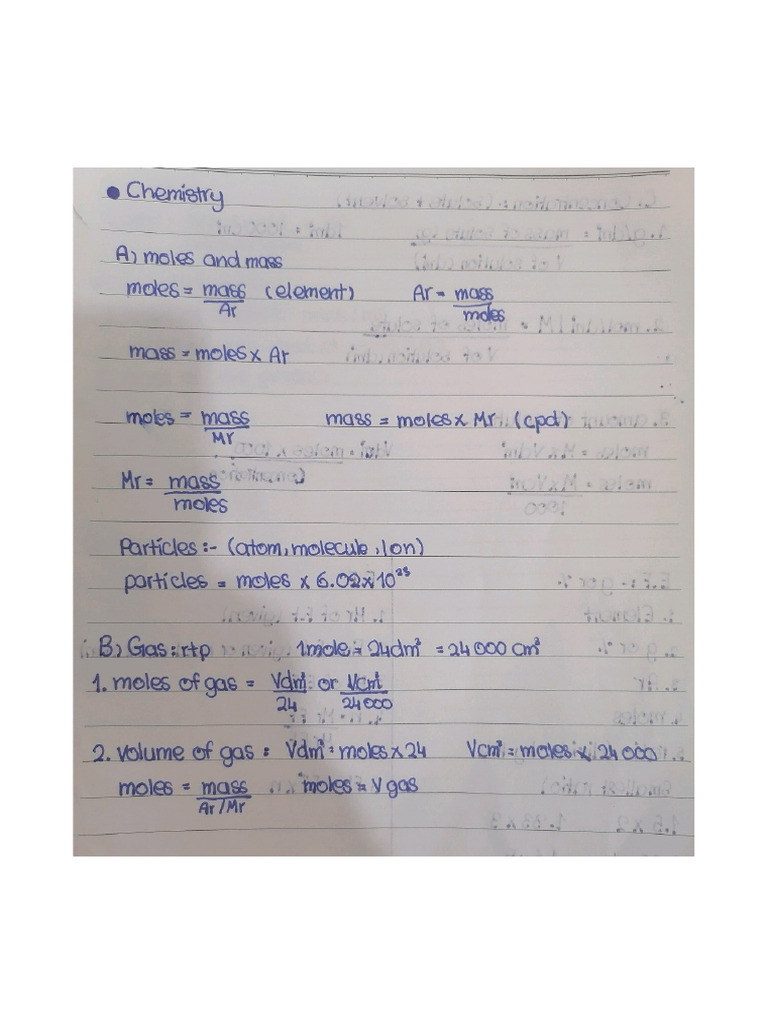 • Chemistry
A) moles and mass
moles = mass/Ar (element) Ar = mass/moles
mass = moles x Ar
moles = mass/Mr mass = moles x Mr (cpd)
Mr = mass/moles
Particles :- (atom, molecule, Ion)
particles = moles x 6.02x10²³
B) Gas: rtp 1mole = 24dm³ = 24000 cm³
1. moles of gas = Vdm³/24 or Vcm³/24000
2. volume of gas : Vdm³ = moles x 24 Vcm³ = moles x 24000
moles = mass/Ar/Mr moles = V gas